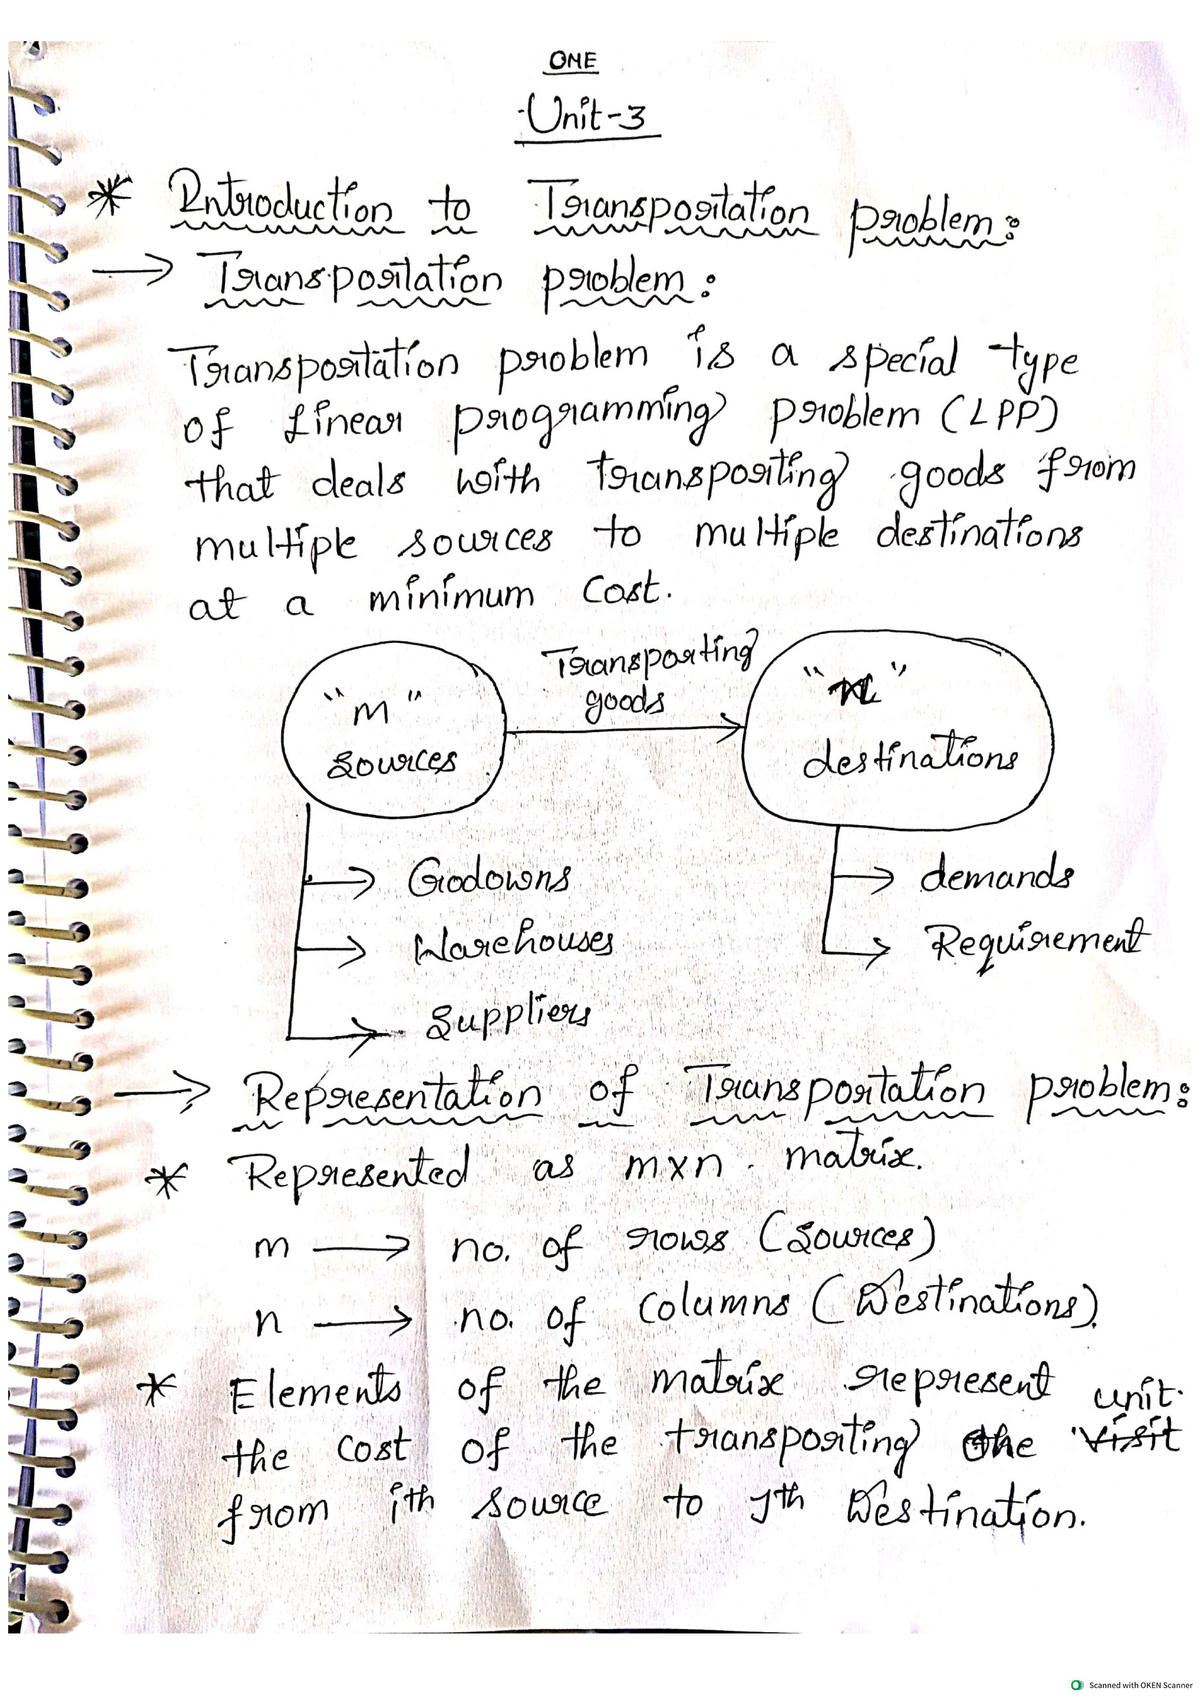 ONE
Unit-3
* Introduction to Transportation problem:
→ Transportation problem:
Transportation problem is a special type
of linear programming problem (LPP)
that deals with transporting goods from
multiple sources to multiple destinations
at a minimum cost.
"m"
sources
Transporting
goods
"n"
destinations
→ Godowns
→ Warehouses
→ Suppliers
→ demands
→ Requirement
→ Representation of Transportation problem:
* Represented as mxn matrix.
m → no. of rows (Sources)
n → no. of columns (Destinations).
* Elements of the matrix represent unit.
the cost of the transporting the visit
from ith source to jth Destination.
Scanned with OKEN Scanner